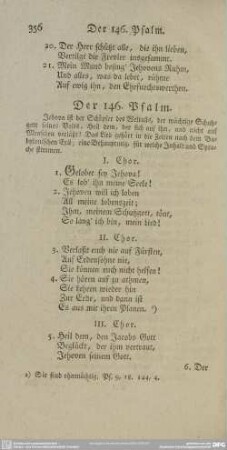 356 Der 146. Psalm.
20. Der Herr schützt alle, die ihn lieben,
Vertilgt die Frevler insgesammt.
21. Mein Mund besing' Jehovens Ruhm,
Und alles, was da lebet, rühme
Auf ewig ihn, den Ehrfurchtswerthen.
Der 146. Psalm.
Jehova ist der Schöpfer des Weltalls, der mächtige
Heil dem, der sich auf ihn, und nicht auf
Menschen verläßt! Das Lob gehört in die Zeiten nach dem
Exil; eine Behauptung, für welche Inhalt und
stimmen.
I. Chor.
1. Gelobet sey Jehova!
Es lob' ihn meine Seele!
2. Jehoven will ich loben
All meine lebenszeit;
Ihm, meinem Schutzgott, töne,
So lang' ich bin, mein lied!
II. Chor.
3. Verlaßt euch nie auf Fürsten,
Auf Erdensöhne nie,
Sie können euch nicht helfen!
4. Sie hören auf zu athmen,
Sie kehren wieder hin
Zur Erde, und dann ist
Es aus mit ihren Planen.
III. Chor.
5. Heil dem, den Jacobs Gott
Beglückt, der ihm vertraut,
Jehoven seinem Gott.
6. Der
a) Sie sind ohnmächtig. Ps. 144, 4.